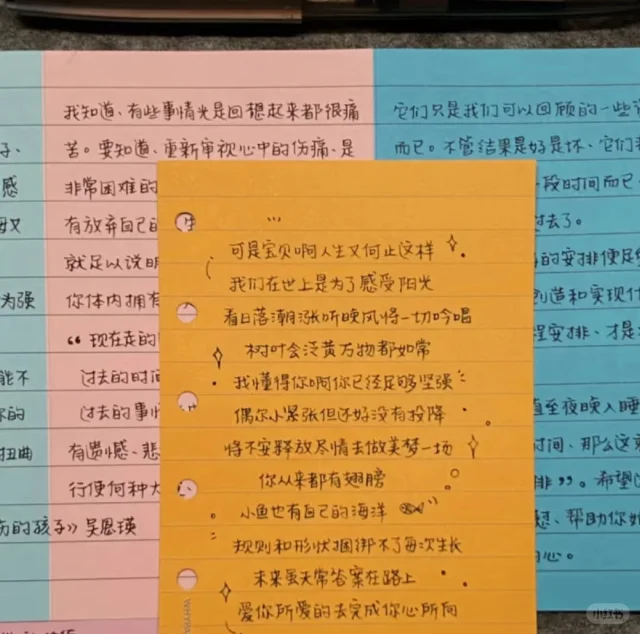 子、
感
母又
为强
能不
你的
扭曲
伤的孩子》吴恩瑛
我知道、有些事情光是回想起来都很痛
苦。要知道、重新审视心中的伤痛、是
非常困难的
有放弃自己的
就足以说明
你体内拥有
“现在走的
过去的时间
过去的事情
有遗憾、悲
行使何种大
可是宝贝啊人生又何止这样
我们在世上是为了感受阳光
看日落潮涨听晚风将一切吟唱
树叶会泛黄万物都如常
我懂得你啊你已经足够坚强
偶尔小紧张但还好没有投降
将不安释放尽情去做美梦一场
你从来都有翅膀
小鱼也有自己的海洋
规则和形状捆绑不了每次生长
未来虽无常答案在路上
爱你所爱的去完成你心所向
WHYP
它们只是我们可以回顾的一些
而已。不管结果是好是坏、它们
段时间而已
过去了。
的安排便足
创造和实现什
程安排、才是
直至夜晚入睡
时间、那么这
排”。希望
想、帮助你
心。
小红书